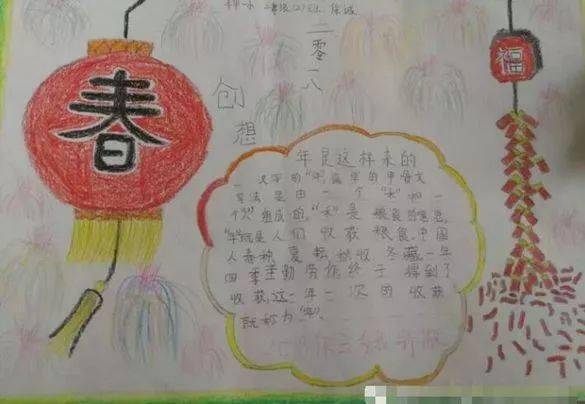 二零一八
创想
春
福
年是这样来的
汉字的"年"最早的甲骨文
写法是由一个"禾"和一
个"人"组成的,"禾"是粮食的意思,
"年"就是人们收获粮食。中国
人春种夏耘秋收冬藏,一年
四季辛勤劳作终于得到了
收获,这一年一次的收获
就称为"年"。